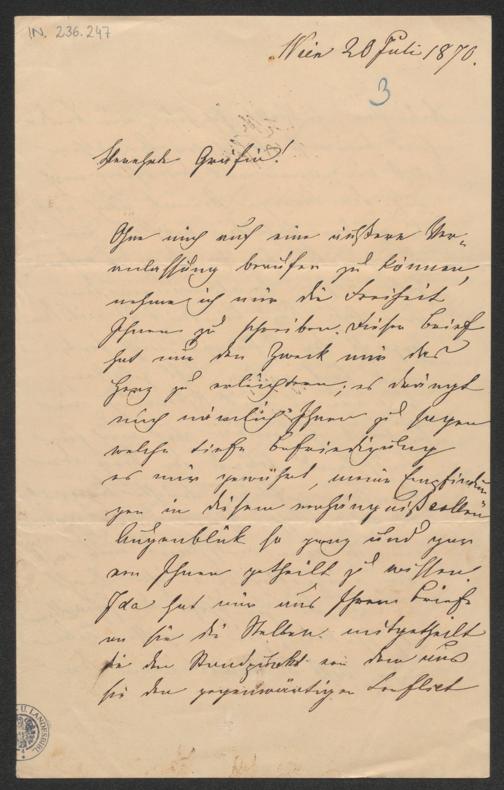 IN. 236.247
Wien 20 Juli 1870.
3
Verehrte Gräfin!
Ohne mich auf eine äußere Ver-
anlassung berufen zu können,
nehme ich mir die Freiheit
Ihnen zu schreiben. Dieser Brief
hat nur den Zweck mir das
Herz zu erleichtern; es drängt
mich nämlich Ihnen zu sagen
welche tiefe Befriedigung
es mir gewährt, meine Empfindun
gen in diesem verhängnißvollen
Augenblick so ganz und gar
von Ihnen getheilt zu wissen.
Ida hat mir aus Ihrem Briefe
an sie die Stellen mitgetheilt
die den Standpunkt von dem aus
sie den gegenwärtigen Conflict
U. LANDESBIBL.